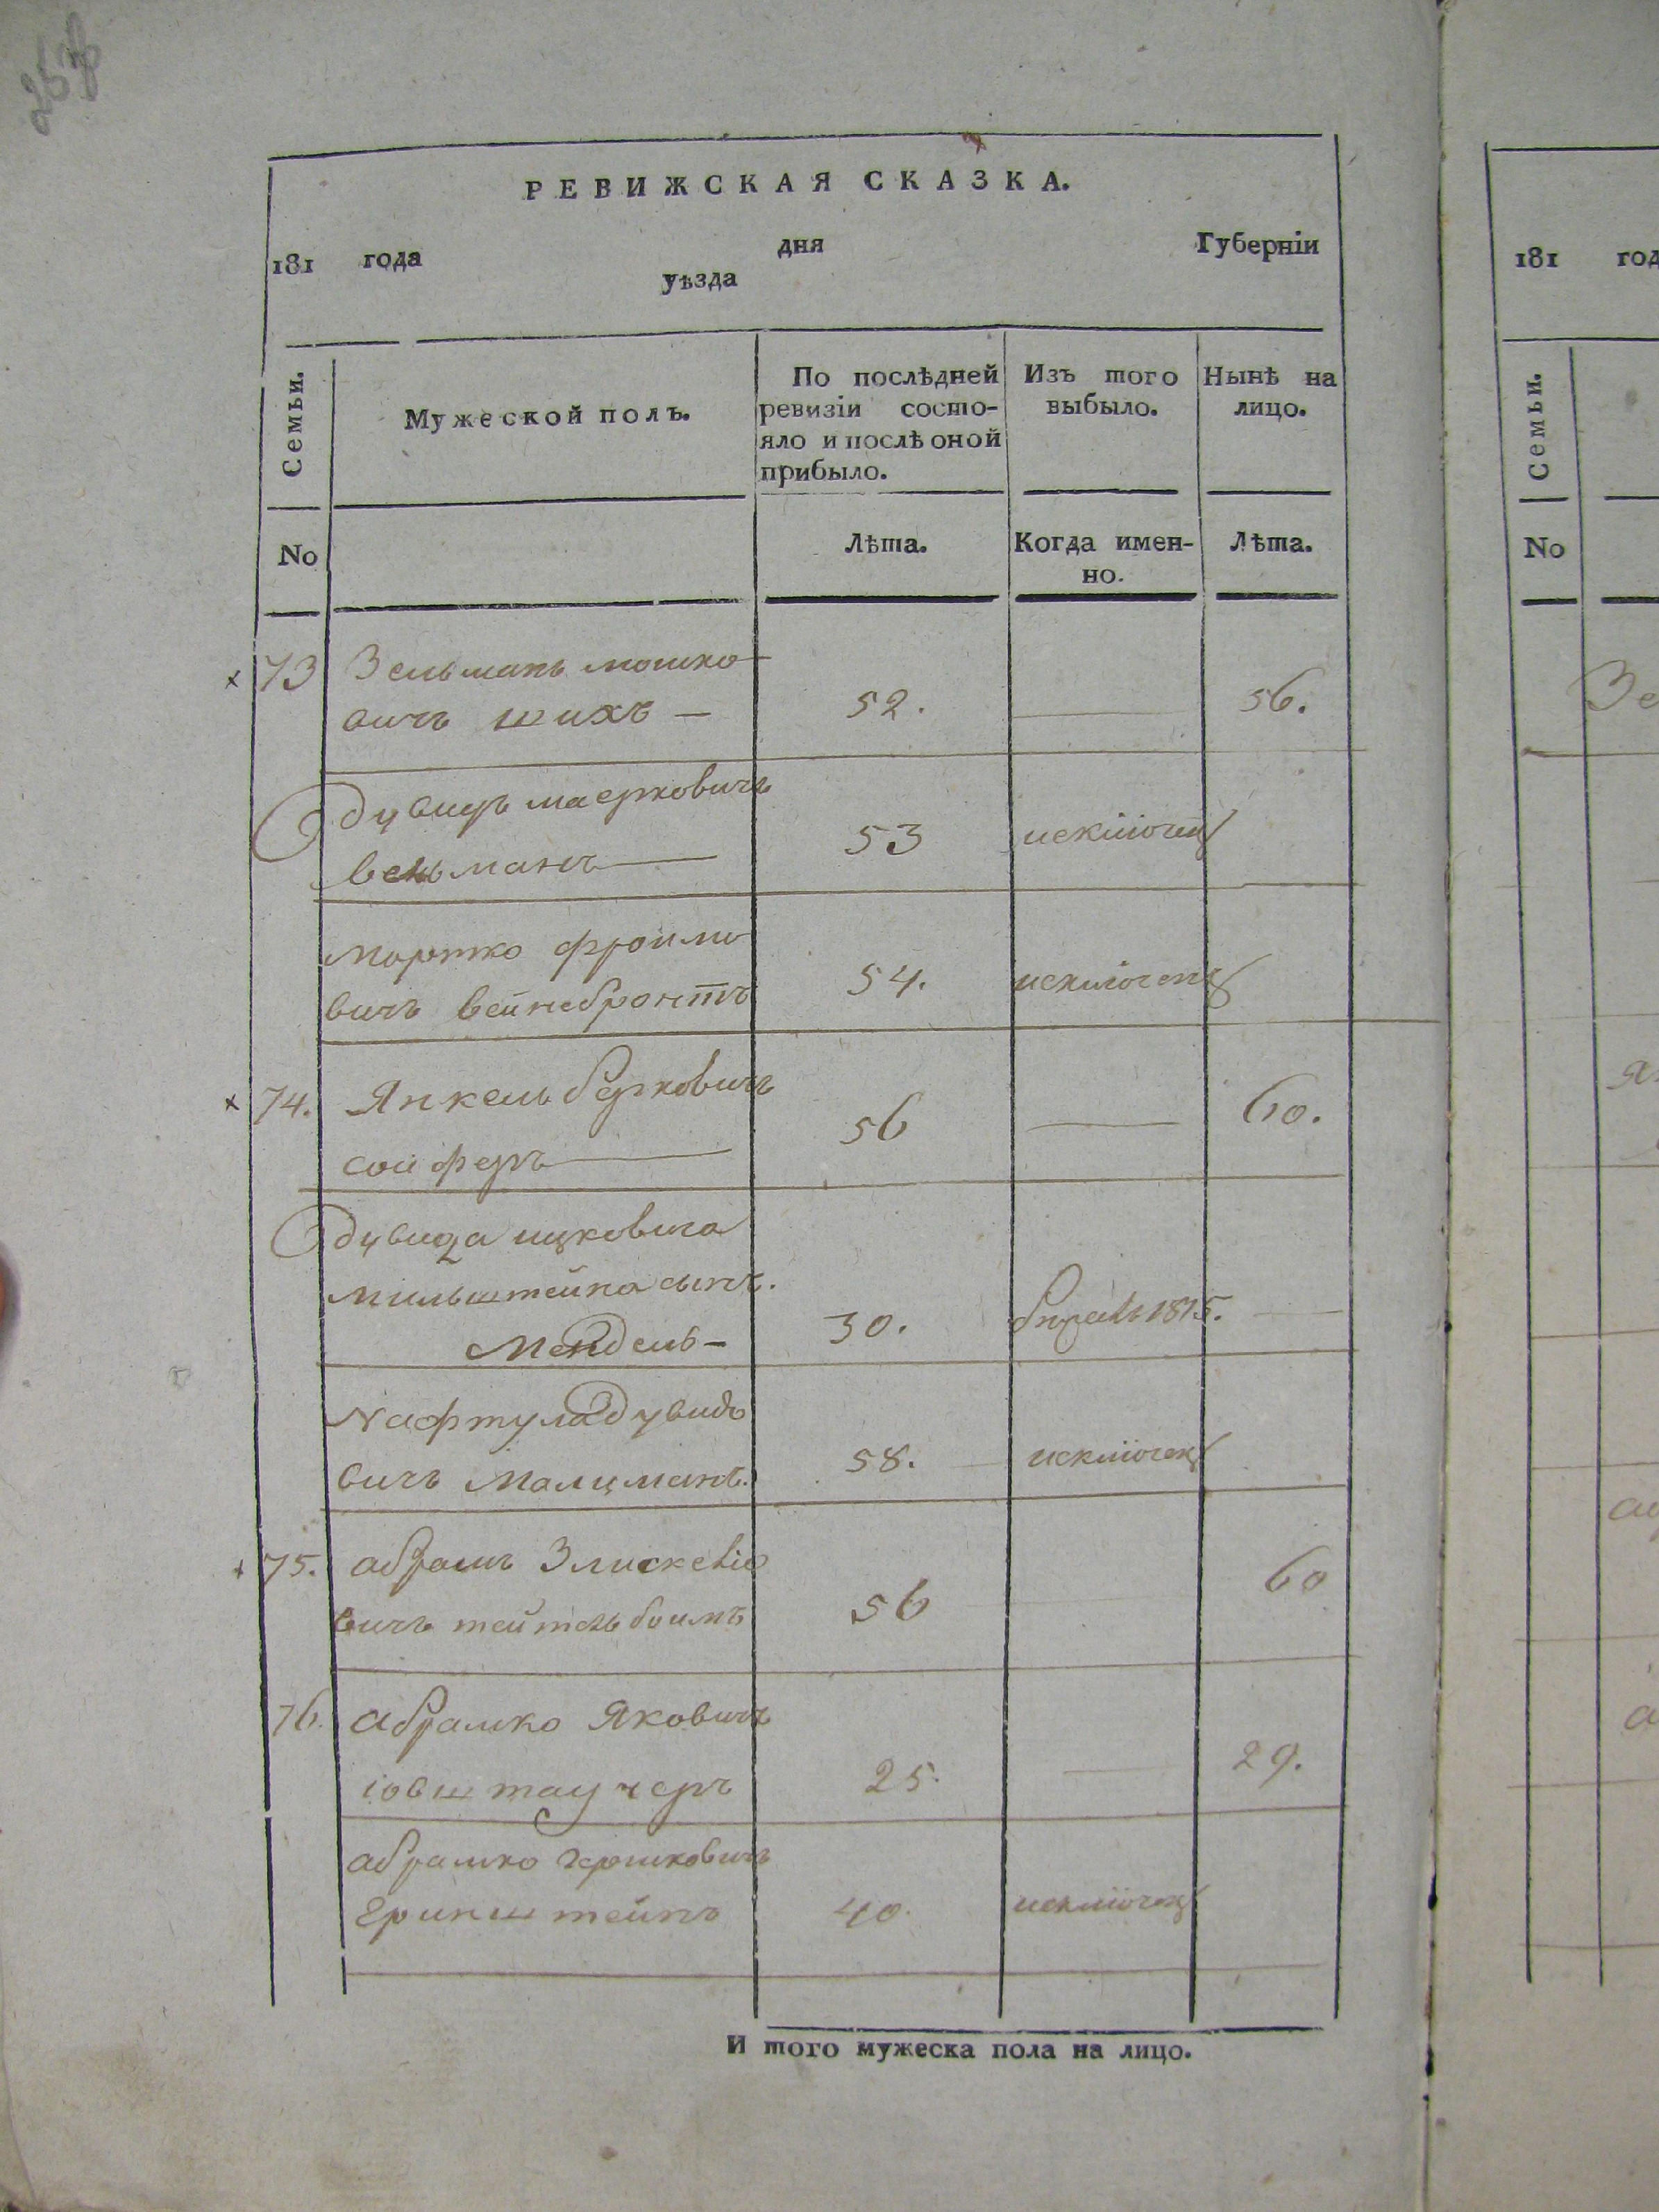 РЕВИЖСКАЯ СКАЗКА.
181 года дня Губерніи
уѣзда
Семьи. Мужеской полъ. По послѣдней Изъ того Нынѣ на
ревизіи состо- выбыло. лицо.
яло и послѣ оной
прибыло.
No Лѣта. Когда имен- Лѣта.
но.
73 Зельманъ мошко
вичъ шихъ — 52. 56.
Дувидъ маерковичъ
вельманъ 53 исключенъ
Мортко фроимо
вичъ вейнебронтъ 54. исключенъ
74. Янкель берковичъ
сойферъ 56 60.
Дувида ицковича
мильштейна сынъ.
Мендель — 30. 1815.
Нафтула дувидо
вичъ малцманъ. 58. исключенъ
75. абрамъ
вичъ тейтельбоимъ 56 60
76. абрамко Яковичъ
25. 29.
абрамко гершковичъ
Еринштейнъ 40. исключенъ
И того мужеска пола на лицо.
181 год
Семьи.
No
Зе